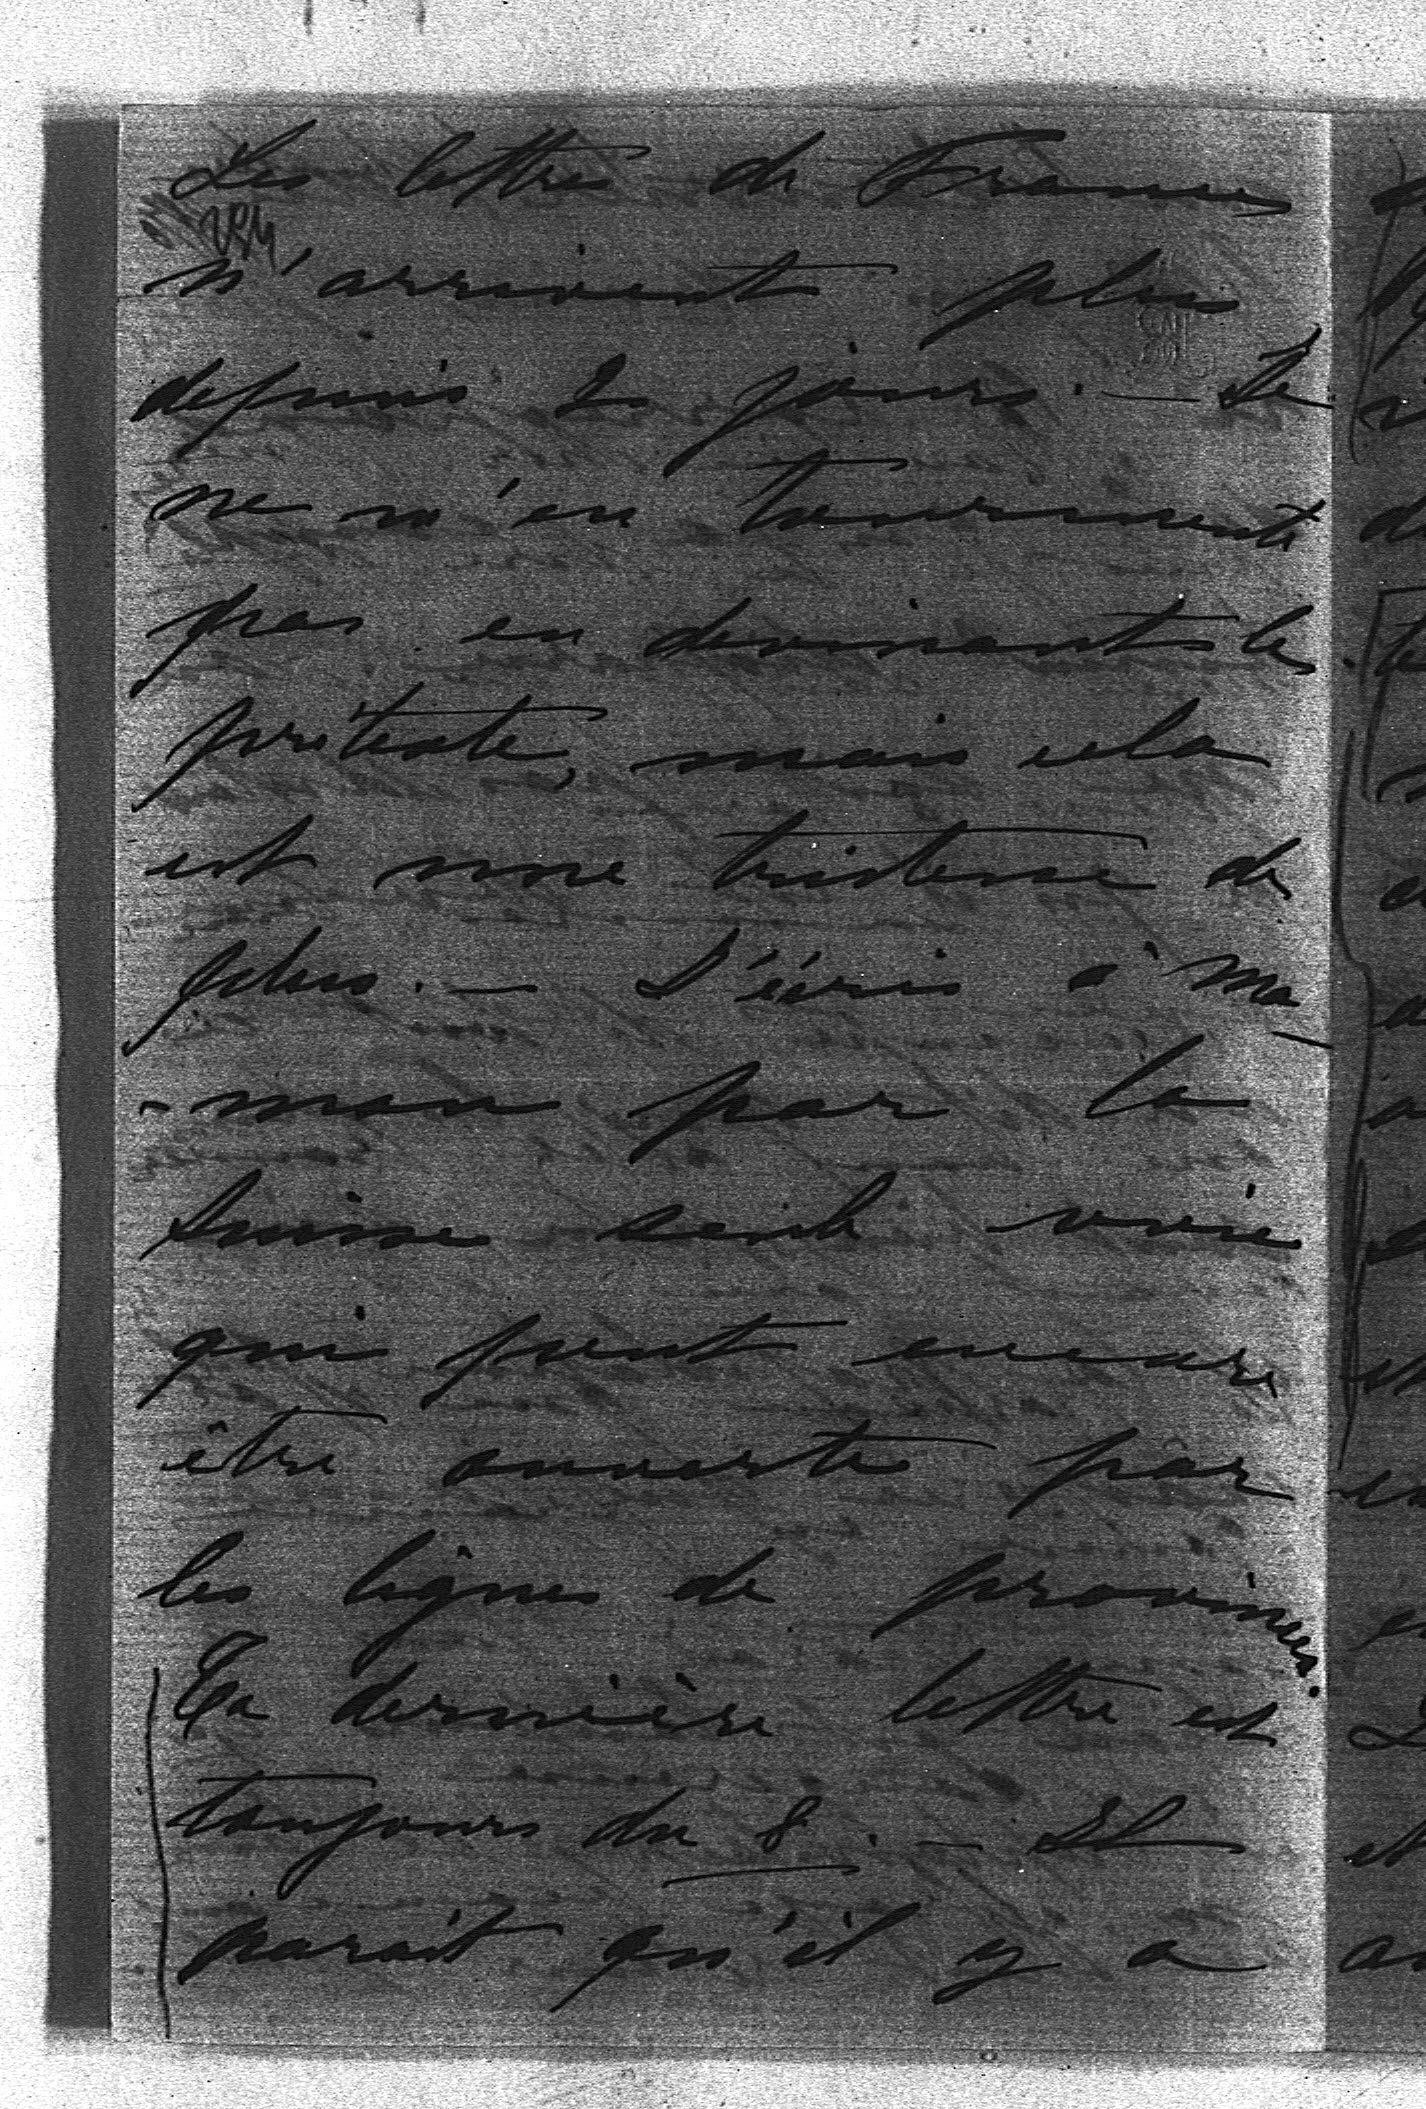 Les lettres de France
n'arrivent plus
depuis 2 jours. — Je
ne m'en tourmente
pas en devinant le
prétexte, mais cela
est une tristesse de
plus. — J'écris à ma-
-man par la
Suisse seule voie
qui peut encore
être ouverte par
les lignes de provinces.
Ta dernière lettre est
toujours du 8. — Il
parait qu'il y a